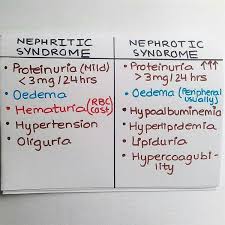 NEPHRITIC
SYNDROME
• Proteinuria (Mild)
< 3mg/24 hrs
• Oedema
• Hematuria (RBC
cast)
• Hypertension
• Oliguria
NEPHROTIC
SYNDROME
• Proteinuria ↑↑↑
> 3mg/24hrs
• Oedema (Peripheral
usually)
• Hypoalbuminemia
• Hyperlipidemia
• Lipiduria
• Hypercoagubi-
lity